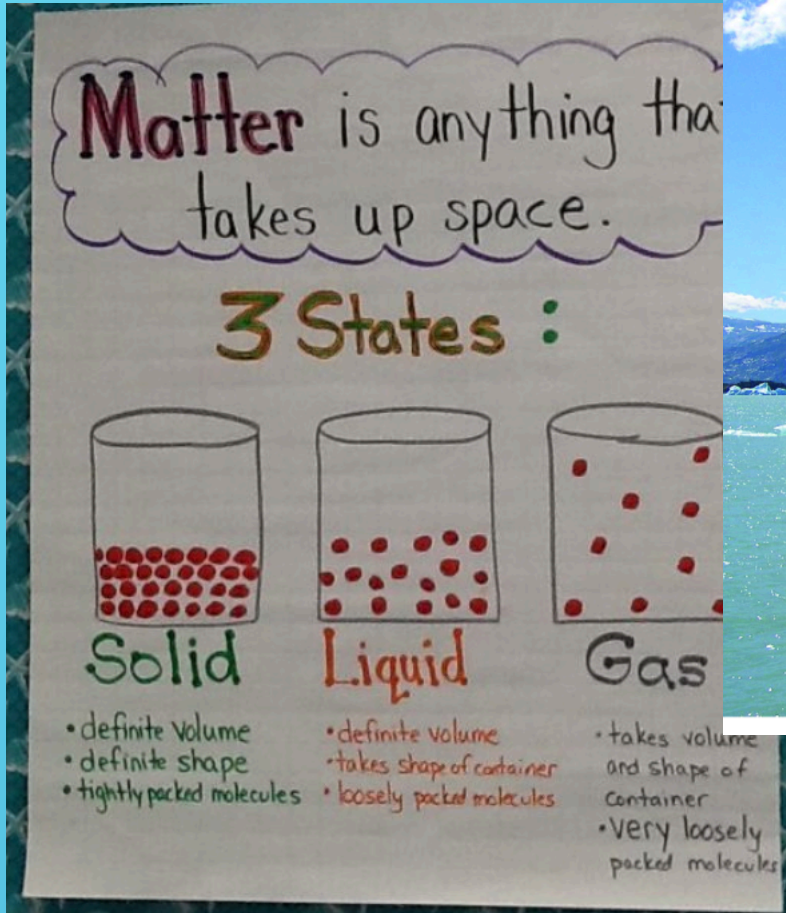 Matter is anything tha
takes up space.
3 States :
Solid
• definite volume
• definite shape
• tightly packed molecules
Liquid
• definite volume
• takes shape of container
• loosely packed molecules
Gas
• takes volume
and shape of
container
• very loosely
packed molecules